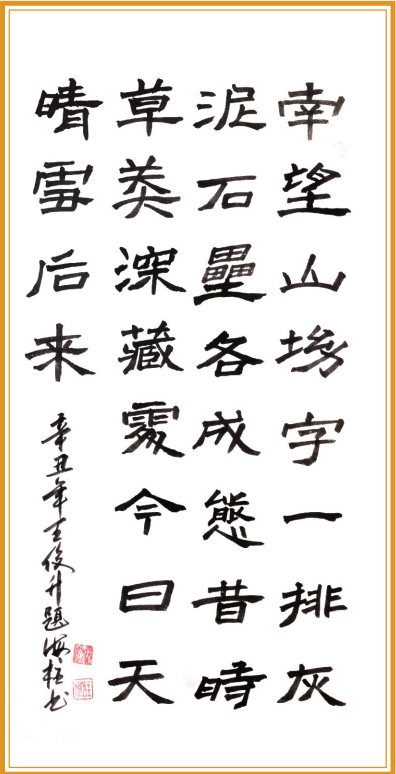 南望山字一排灰
泥石壘各成態昔時
草深藏處今日天
晴雪后来
辛丑年王俊升题海柱书